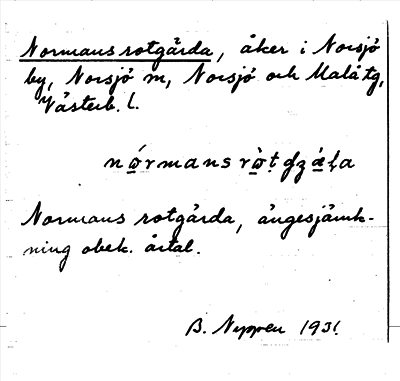 Normans rotgärda, åker i Norsjö
by, Norsjö sn, Norsjö och Malå tg,
Västerb. l.
Normans rotgärda, ängesjämk-
ning obek. årtal.
B. 1931